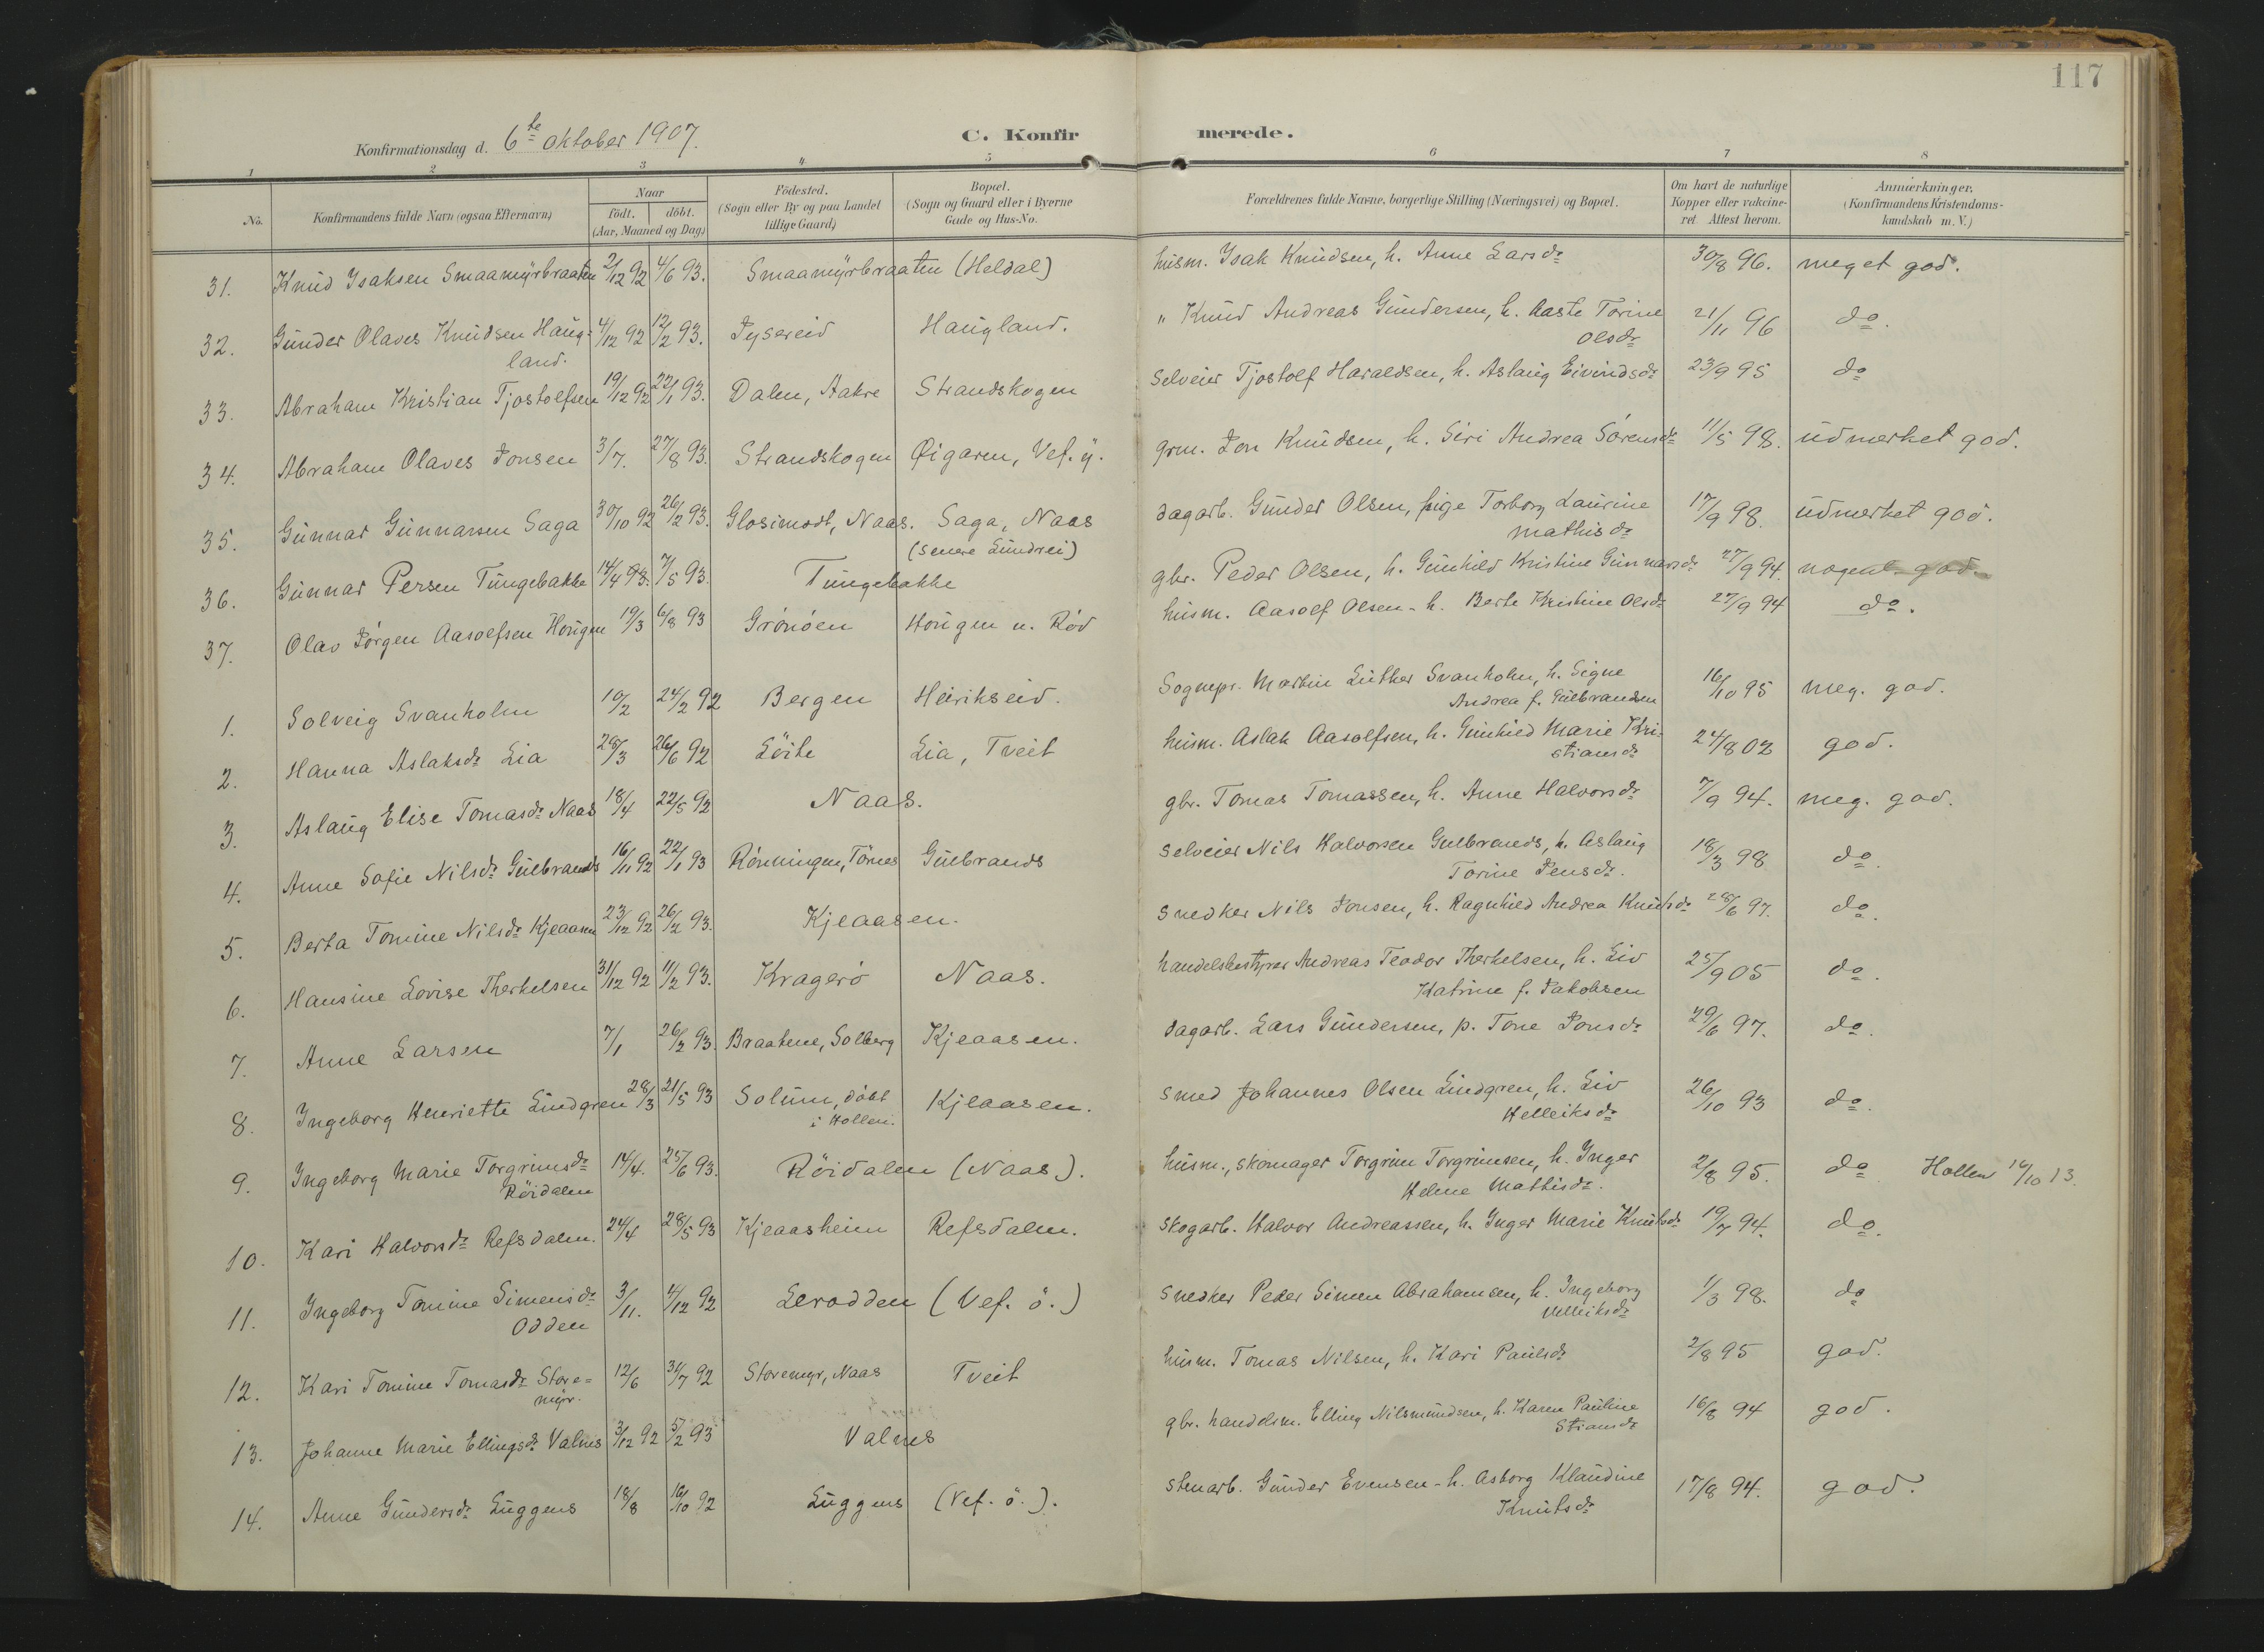 117
Konfirmationsdag d. 6te oktober 1907.
C. Konfirmerede.
1 2 3 4 5 6 7 8
No.
Konfirmandens fulde Navn (ogsaa Efternavn)
Naar
födt. döbt.
(Aar, Maaned og Dag)
Födested.
(Sogn eller By og paa Landet
tillige Gaard)
Bopæl.
(Sogn og Gaard eller i Byerne
Gade og Hus-No.
Forældrenes fulde Navne, borgerlige Stilling (Næringsvei) og Bopæl.
Om havt de naturlige
Kopper eller vakcine-
ret Attest herom.
Anmærkninger,
(Konfirmandens Kristendoms-
kundskab m. V.)
31. Knud Isaksen Smaamyrbraaten 2/12 92 4/6 93. Smaamyrbraaten (Heldal) husm. Isak Knudsen, h. Anne Larsdr 30/8 96. meget god.
32. Gunder Olaves Knudsen Haug= 4/12 92 12/2 93. Tysereid Haugland. " Knud Andreas Gundersen, h. Aaste Torine 21/11 96 do.
land. Olsdr
33. Abraham Kristian Tjostolfsen 19/12 92 22/1 93. Dalen, Aakre Strandskogen Selveier Tjostolf Haraldsen, h. Aslaug Eivindsdr 23/9 95 do
34. Abraham Olaves Jonsen 3/7. 27/8 93. Strandskogen Øigaren, Vef. y. grm. Jon Knudsen, h. Siri Andrea Sörensdr 11/5 98. udmerket god.
35. Gunnar Gunnarsen Saga 30/10 92 26/2 93. Glosimodt, Naas. Saga, Naas dagarb. Gunder Olsen, pige Torborg Laurine 17/9 98. udmerket god.
(senere Lundrei) Mathisdr
36. Gunnar Persen Tungebakke 14/4 93. 7/5 93. Tungebakke gbr. Peder Olsen, h. Gunhild Kristine Gunnarsdr 27/9 94. nogenl. god.
37. Olav Jörgen Aasolfsen Hougen 19/3 6/8 93 Grönöen Hougen u. Röd husm. Aasolf Olsen - h. Berte Kristine Olsdr 27/9 94 do.
1. Solveig Svanholm 10/2 24/2 92 Bergen Heirikseid. Sognepr. Martin Luther Svanholm, h. Signe 16/10 95 meg. god.
Andrea f. Gulbrandsen
2. Hanna Aslaksdr Lia 28/3 26/6 92 Löite Lia, Tveit husm. Aslak Aasolfsen, h. Gunhild Marie Kri- 24/8 02 god.
stiansdr
3. Aslaug Elise Tomasdr Naas 18/4 22/5 92 Naas. gbr. Tomas Tomassen, h. Anne Halvorsdr 7/9 94. meg. god.
4. Anne Sofie Nilsdr Gulbrands 16/11 92 22/1 93 Rönningen, Törnes Gulbrands Selveier Nils Halvorsen Gulbrands, h. Aslaug 18/3 98 do.
Torine Jensdr.
5. Berta Tomine Nilsdr Kjeaasen 23/12 92 26/2 93. Kjeaasen. Snedker Nils Jonsen, h. Ragnhild Andrea Knutsdr 28/6 97. do.
6. Hansine Lovise Therkelsen 31/12 92 11/2 93. Kragerö Naas. handelsbestyrer Andreas Teodor Therkelsen, h. Liv 25/9 05 do.
Katrine f. Jakobsen
7. Anne Larsen 7/1 26/2 93. Braatene, Solberg Kjeaasen. dagarb. Lars Gundersen, p. Tone Jonsdr 29/6 97. do.
8. Ingeborg Henriette Lindgren 28/3 21/5 93 Solum, döbt Kjeaasen. Smed Johannes Olsen Lindgren, h. Liv 26/10 93 do.
i Hollen. Helleiksdr
9. Ingeborg Marie Torgrimsdr 14/4. 25/6 93. Röidalen (Naas). husm., skomager Torgrim Torgrimsen, h. Inger 2/8 95. do Hollen 16/10 13.
Röidalen Helene Mathisdr.
10. Kari Halvorsdr Refsdalen. 24/4 28/5 93 Kjeaasheim Refsdalen. Skogarb. Halvor Andreassen, h. Inger Marie Knutsdr 19/7 94. do.
11. Ingeborg Tomine Simensdr 3/11. 4/12 92 Lerodden (Vef. ö.) Snedker Peder Simen Abrahamsen, h. Ingeborg 1/3 98. do
Odden Helleiksdr
12. Kari Tomine Tomasdr Store= 12/6 31/7 92 Storemyr, Naas Tveit husm. Tomas Nilsen, h. Kari Paulsdr 2/8 95 god.
myr.
13. Johanne Marie Ellingsdr Valnes 3/12 92 5/2 93 Valnes gbr. handelsm. Elling Nilsmundsen, h. Karen Pauline 16/8 94 god.
Stiansdr
14. Anne Gundersdr Luggens 18/8 16/10 92 Luggens (Vef. ö.). Stenarb. Gunder Evensen - h. Asborg Klaudine 17/8 94. god.
Knutsdr